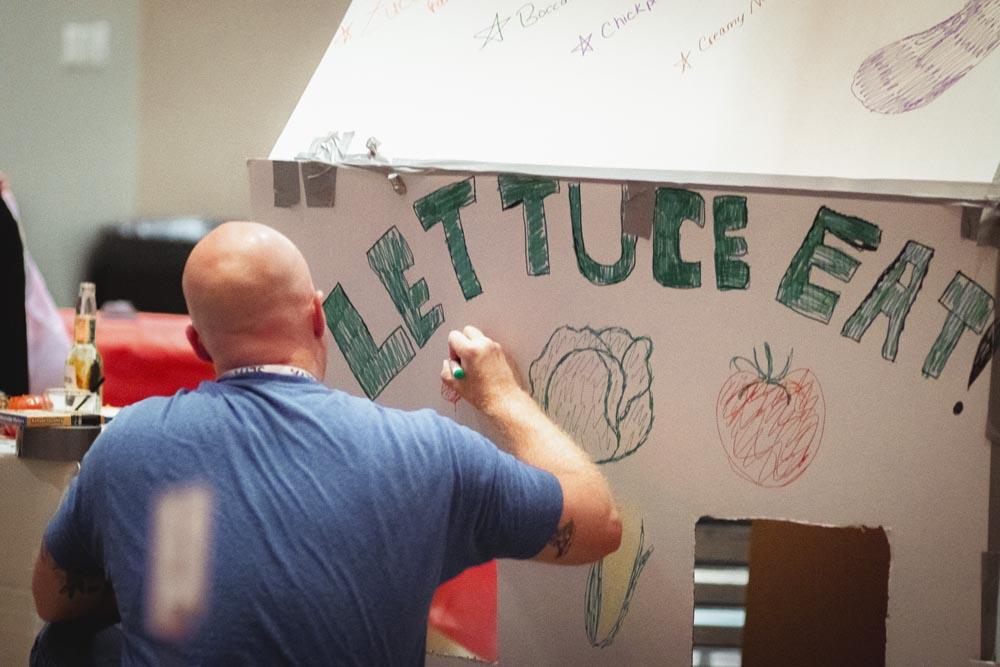 Bocca
Chickp
Creamy
LETTUCE EAT!